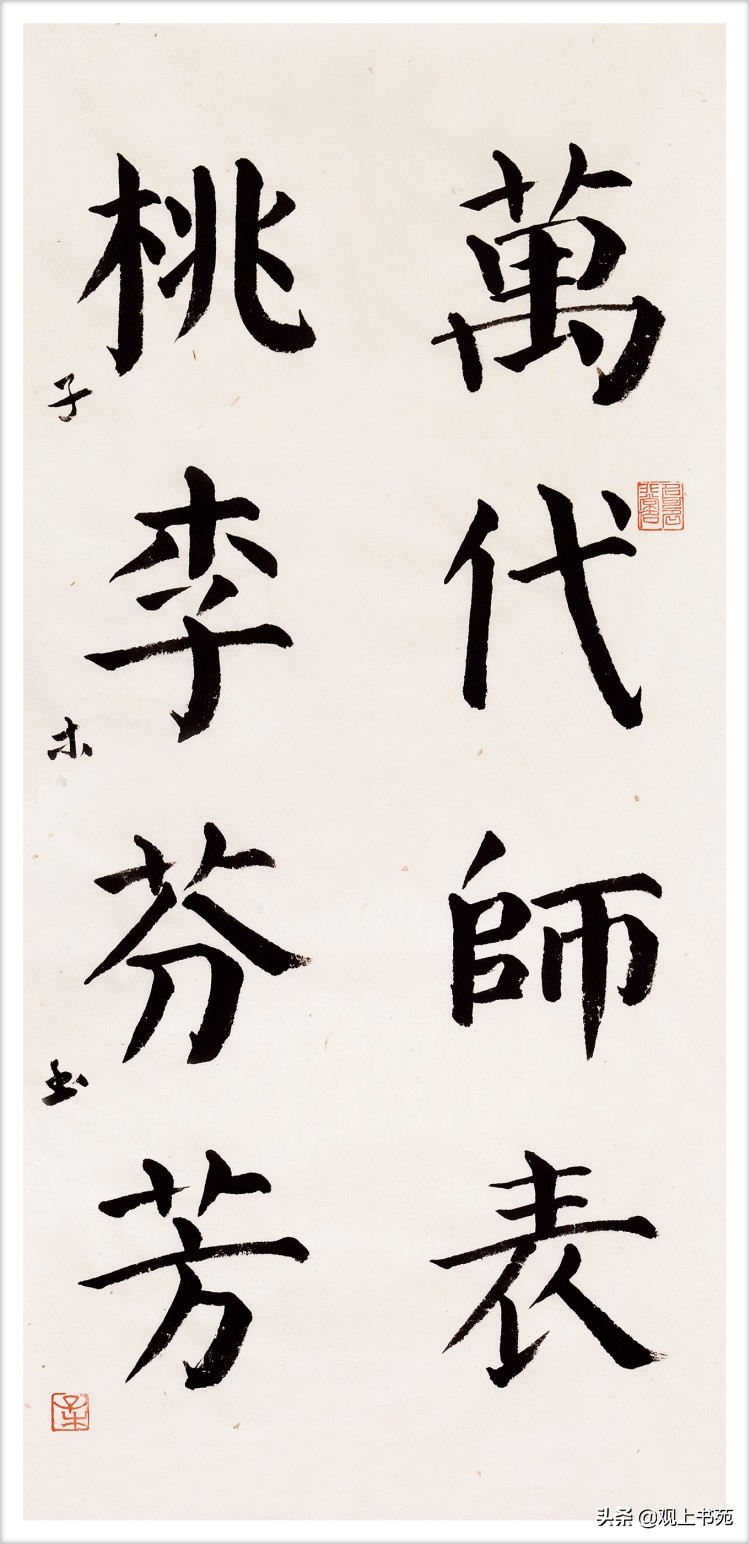 萬代師表
桃李芬芳
子木书
头条 @观上书苑